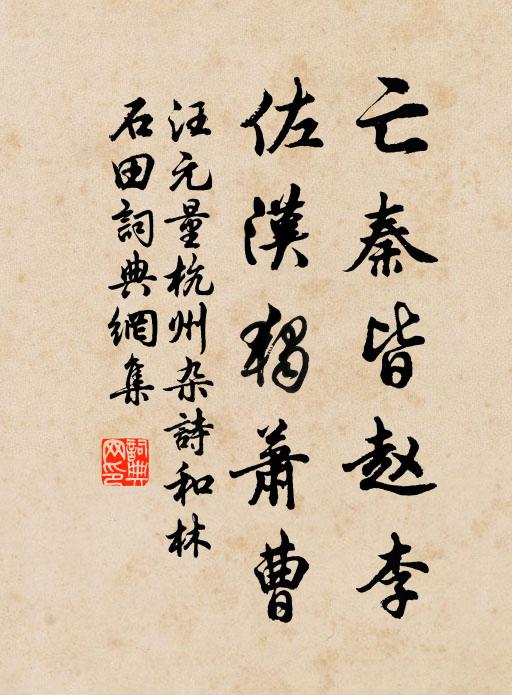 亡秦皆赵李
佐漢獨蕭曹
汪元量杭州杂詩和林
石田詞典網集
詞典
网印